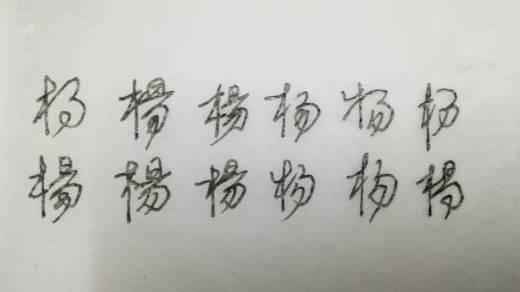 杨楊楊杨杨杨
楊楊楊杨杨楊